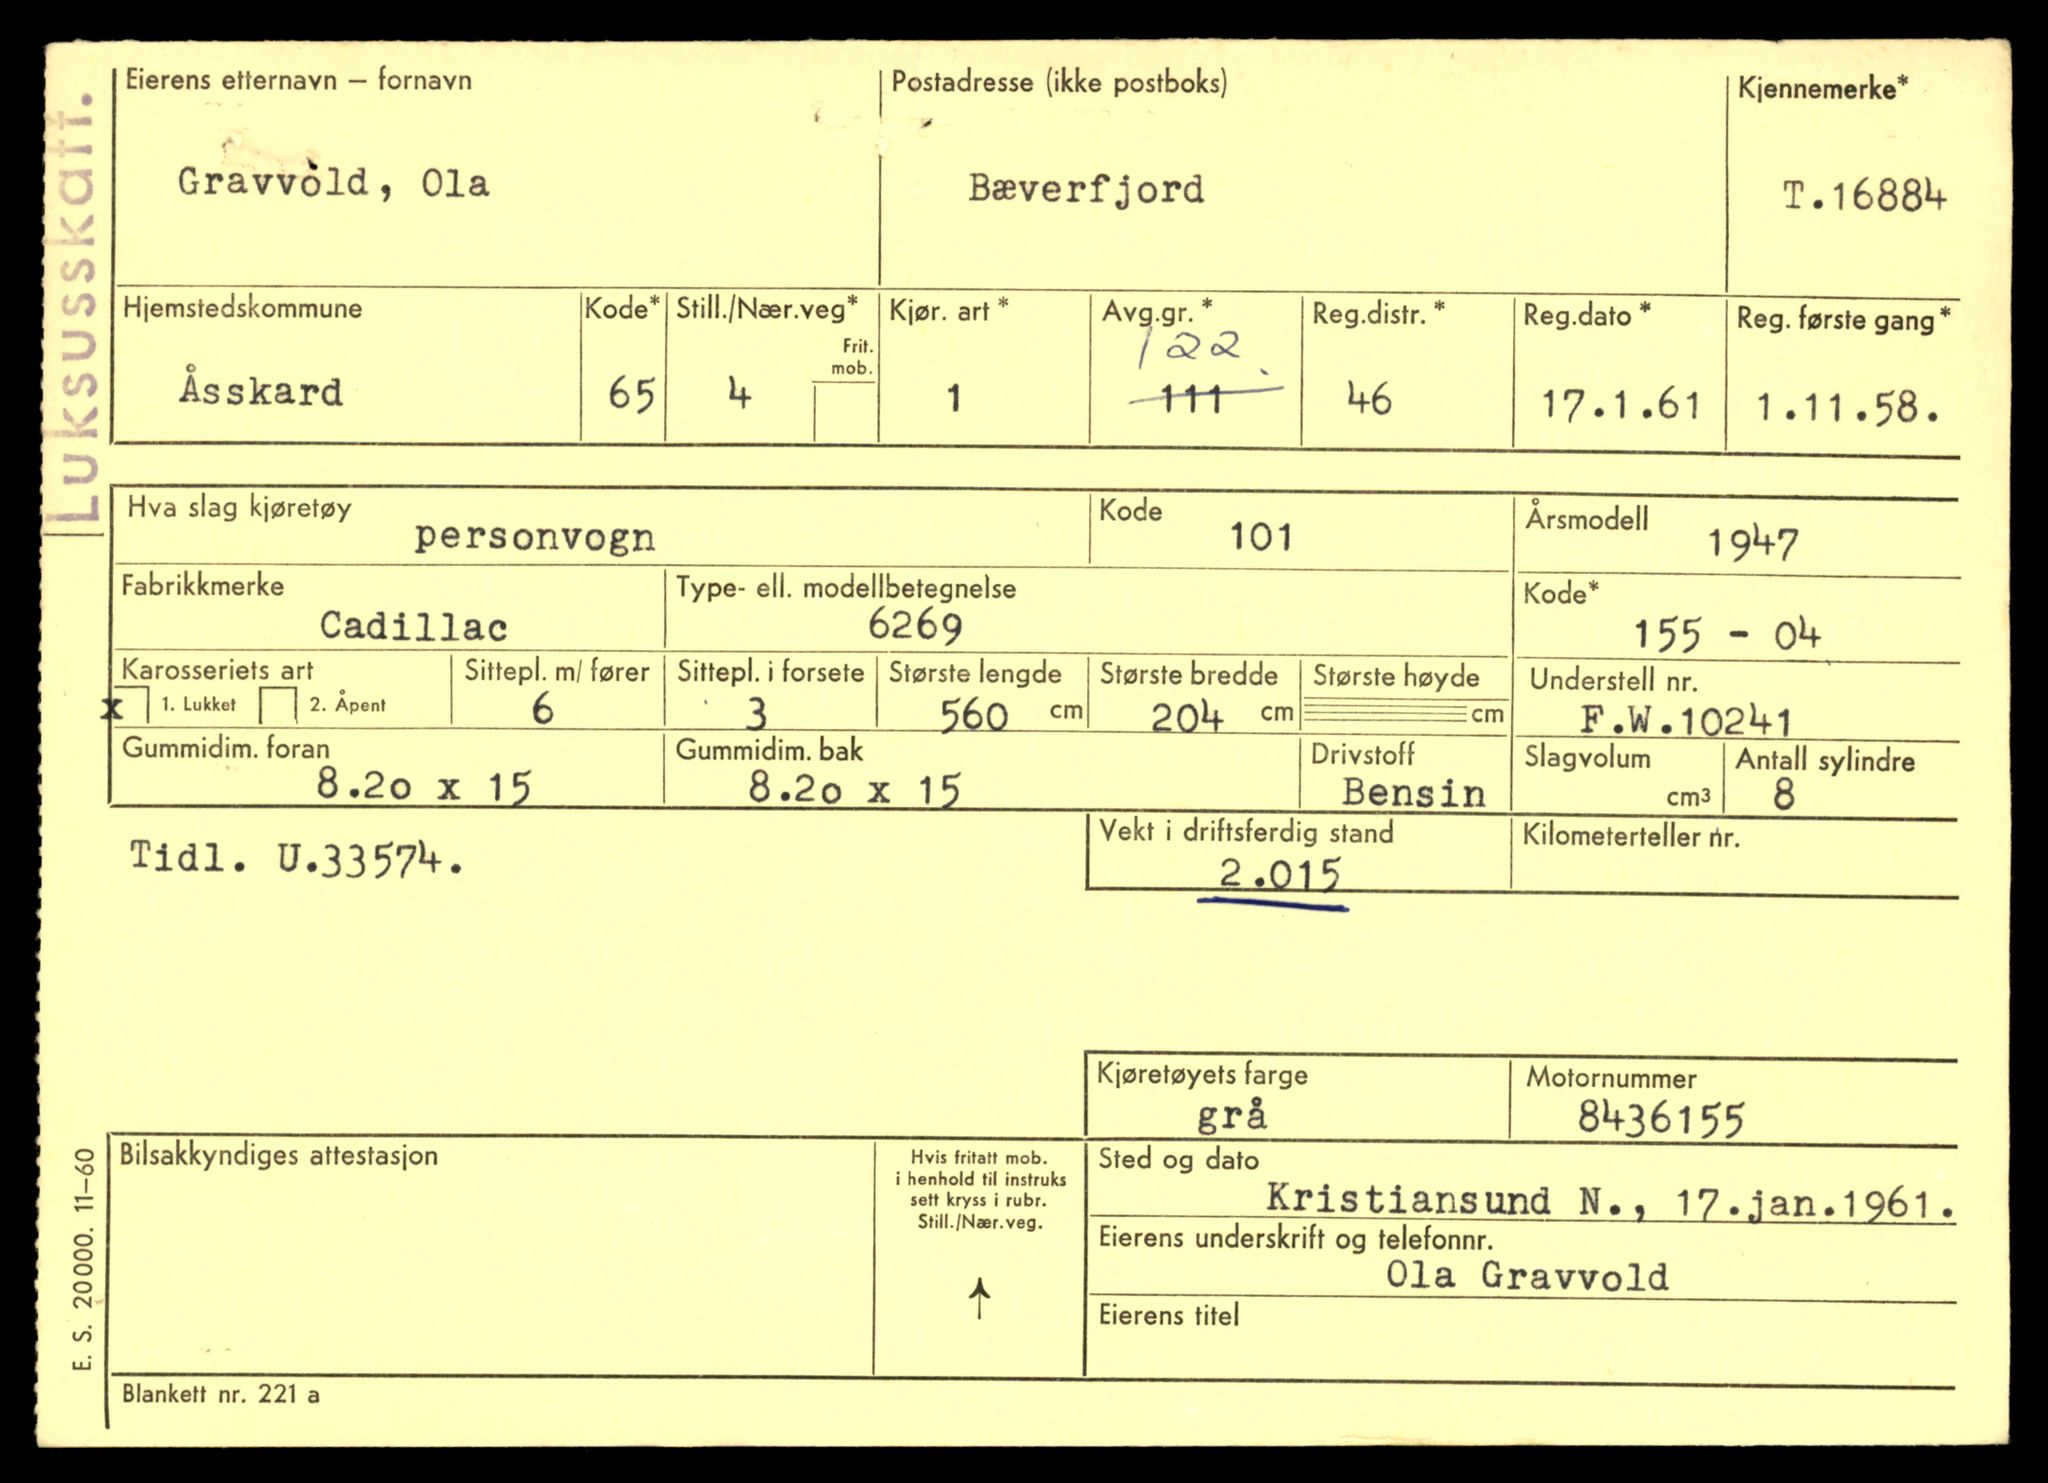 Luksusskatt.
Eierens etternavn – fornavn
Gravvold, Ola
Postadresse (ikke postboks)
Bæverfjord
Kjennemerke*
T.16884
Hjemstedskommune
Åsskard
Kode*
65
Still./Nær.veg*
Frit.
mob.
4
Kjør. art *
1
Avg.gr. *
122
111
Reg.distr. *
46
Reg.dato *
17.1.61
Reg. første gang *
1.11.58.
Hva slag kjøretøy
personvogn
Kode
101
Årsmodell
1947
Fabrikkmerke
Cadillac
Type- ell. modellbetegnelse
6269
Kode*
155 - 04
Karosseriets art
x 1. Lukket 2. Åpent
Sittepl. m/ fører
6
Sittepl. i forsete
3
Største lengde
560 cm
Største bredde
204 cm
Største høyde
cm
Understell nr.
F.W.10241
Gummidim. foran
8.20 x 15
Gummidim. bak
8.20 x 15
Drivstoff
Bensin
Slagvolum
cm³
Antall sylindre
8
Tidl. U.33574.
Vekt i driftsferdig stand
2.015
Kilometerteller nr.
Kjøretøyets farge
grå
Motornummer
8436155
Bilsakkyndiges attestasjon
Hvis fritatt mob.
i henhold til instruks
sett kryss i rubr.
Still./Nær.veg.
Sted og dato
Kristiansund N., 17.jan.1961.
Eierens underskrift og telefonnr.
Ola Gravvold
Eierens titel
E. S. 20000. 11–60
Blankett nr. 221 a